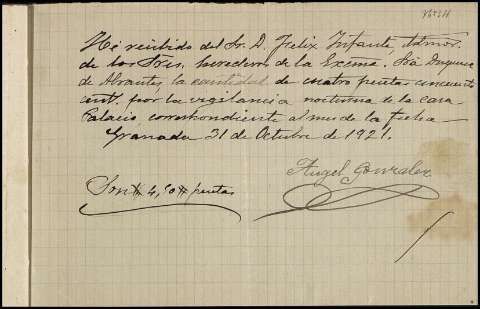 He recibido del Sr. D. Felix Infante, Admor.
de los Sres. herederos de la Excma. Sra Duquesa
de Abrantes, la cantidad de cuatro pesetas cincuenta
cent. por la vigilancia nocturna de la casa
Palacio, correspondiente al mes de la fecha
Granada 31 de Octubre de 1921.
Angel Gonzalez
Son # 4,50 # pesetas